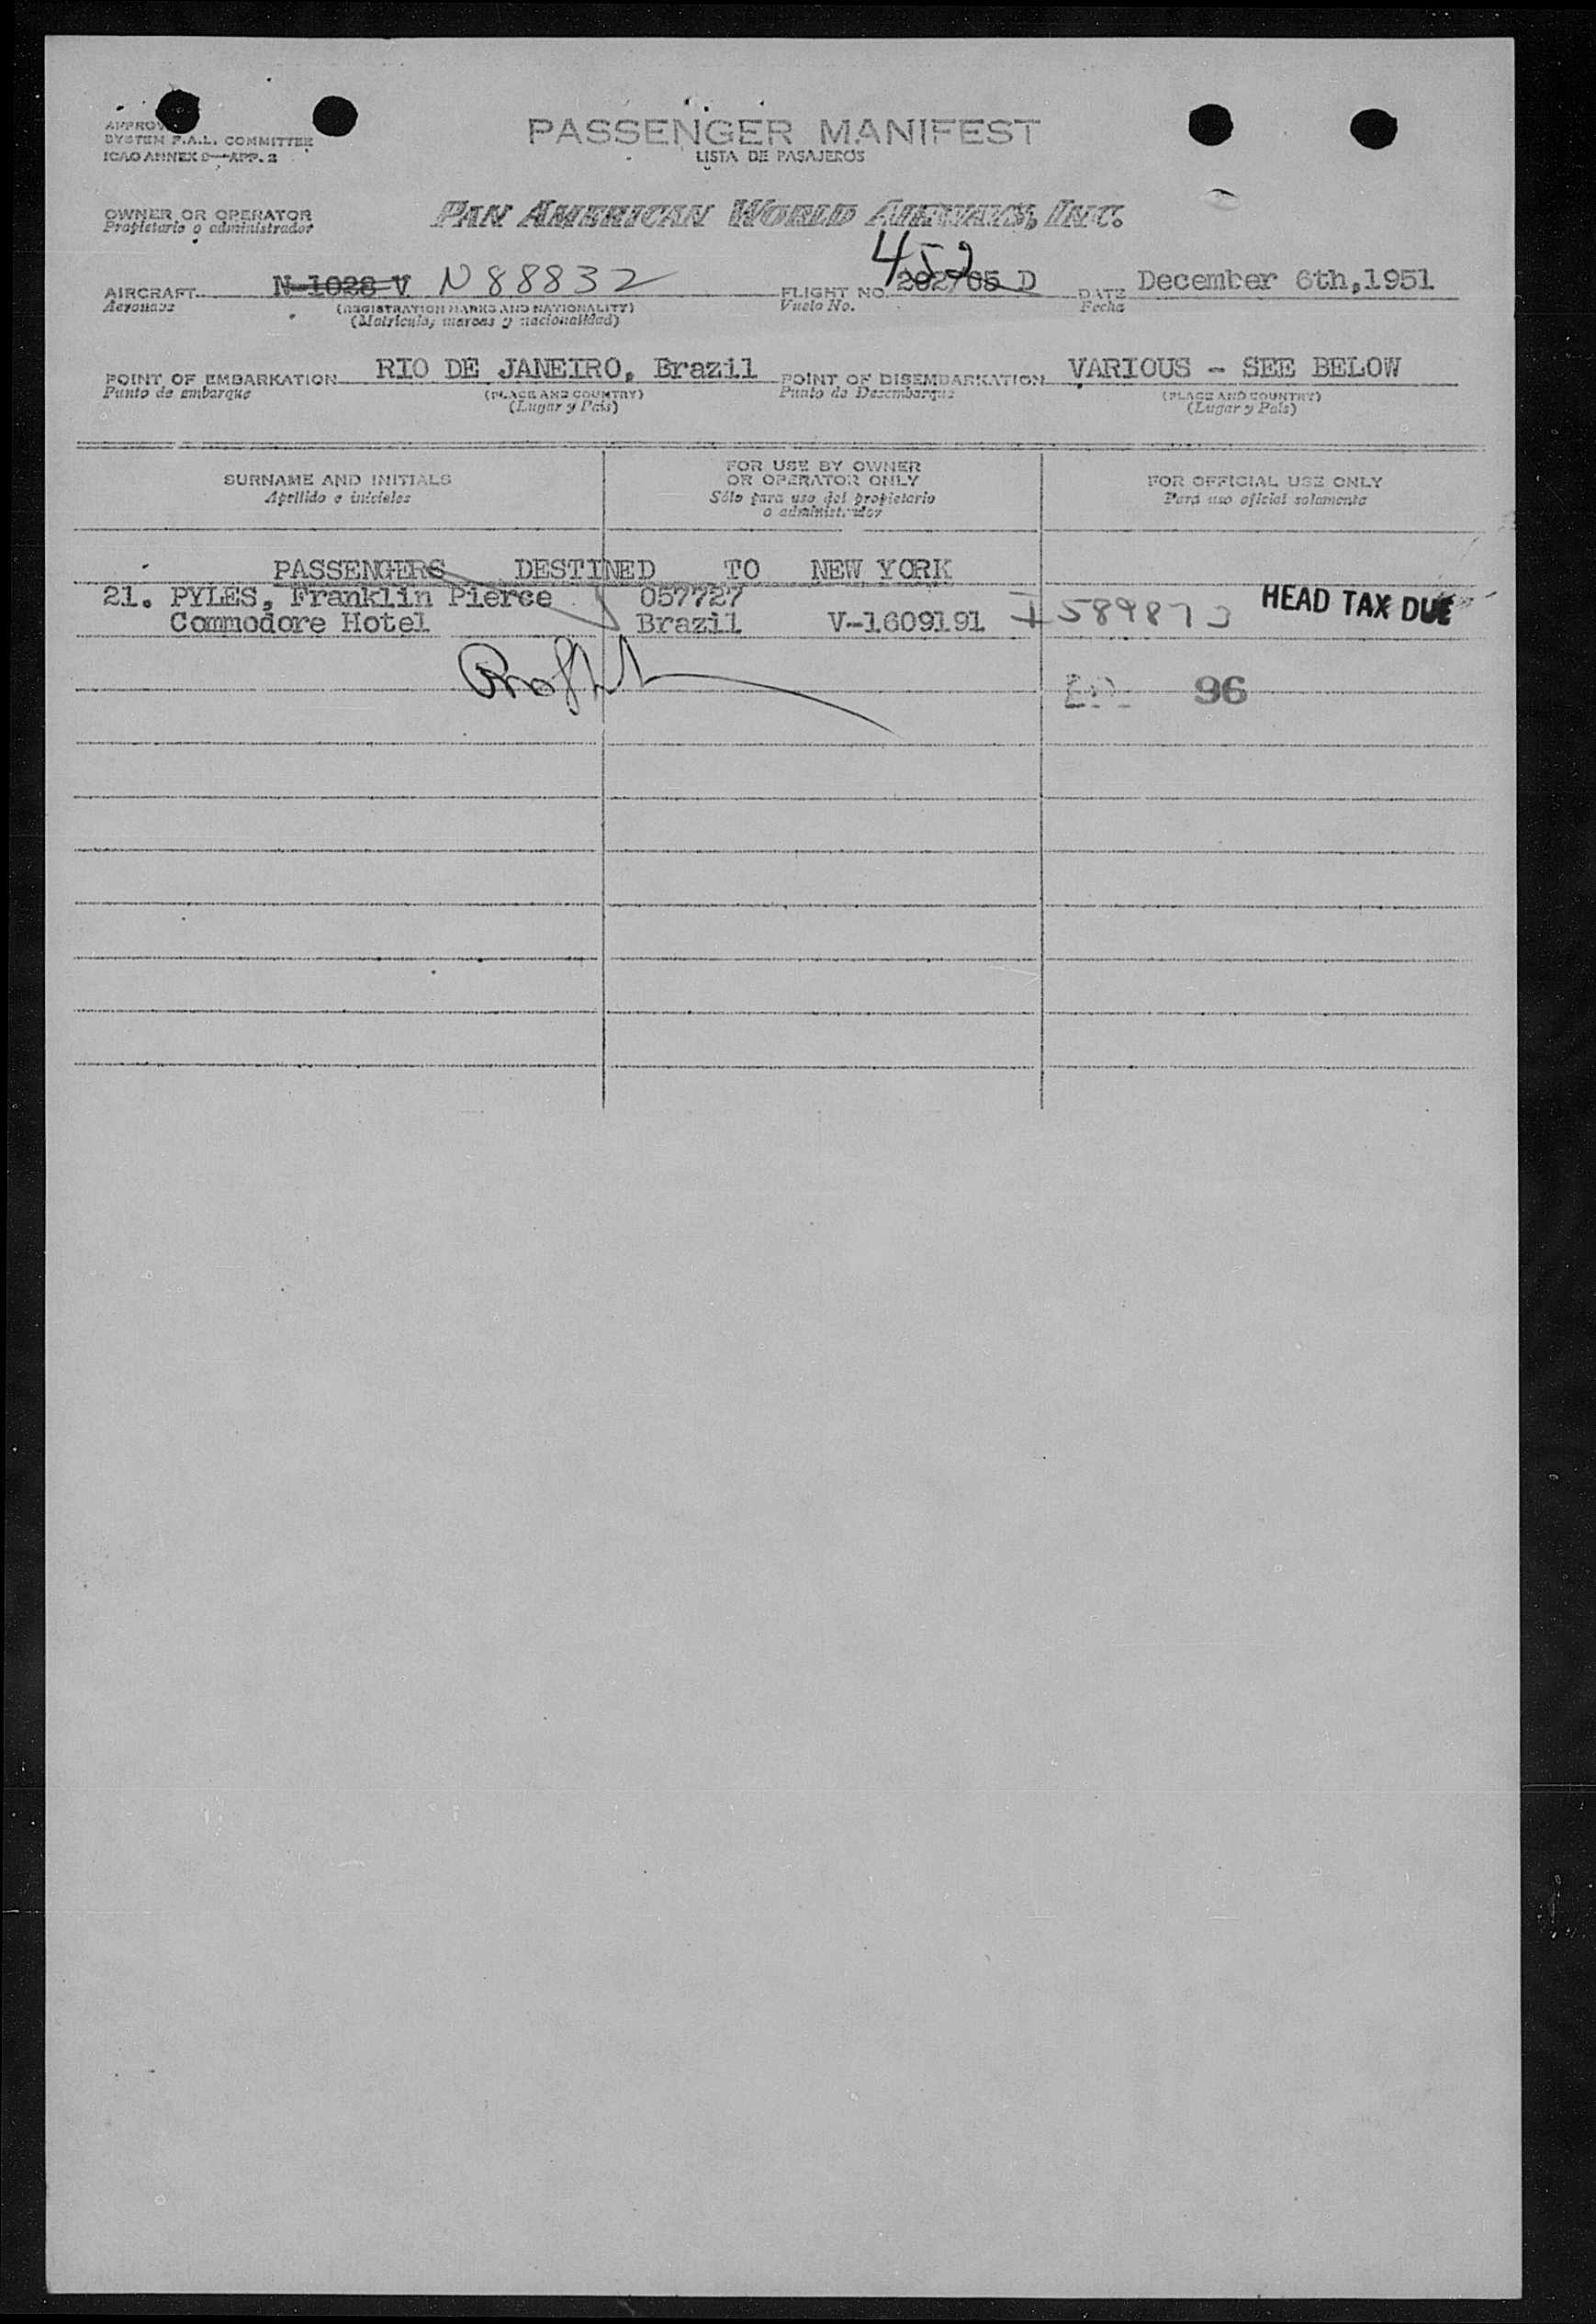 PASSENGER MANIFEST
LISTA DE PASAJEROS
SYSTEM F.A.L. COMMITTEE
ICAO ANNEX 9—APP. 2
OWNER OR OPERATOR
Propietario o administrador
PAN AMERICAN WORLD AIRWAYS, INC.
AIRCRAFT N-1028 V N88832 FLIGHT NO. 202/05 D 452 DATE December 6th,1951
Aeronave (REGISTRATION MARKS AND NATIONALITY) Vuelo No. Fecha
(Matricula, marcas y nacionalidad)
POINT OF EMBARKATION RIO DE JANEIRO, Brazil POINT OF DISEMBARKATION VARIOUS - SEE BELOW
Punto de embarque (PLACE AND COUNTRY) Punto de Desembarque (PLACE AND COUNTRY)
(Lugar y País) (Lugar y País)
SURNAME AND INITIALS
Apellido e iniciales
FOR USE BY OWNER
OR OPERATOR ONLY
Sólo para uso del propietario
o administrador
FOR OFFICIAL USE ONLY
Para uso oficial solamente
PASSENGERS DESTINED TO NEW YORK
21. PYLES, Franklin Pierce 057727 HEAD TAX DUE
Commodore Hotel Brazil V-1609191 I589873
96